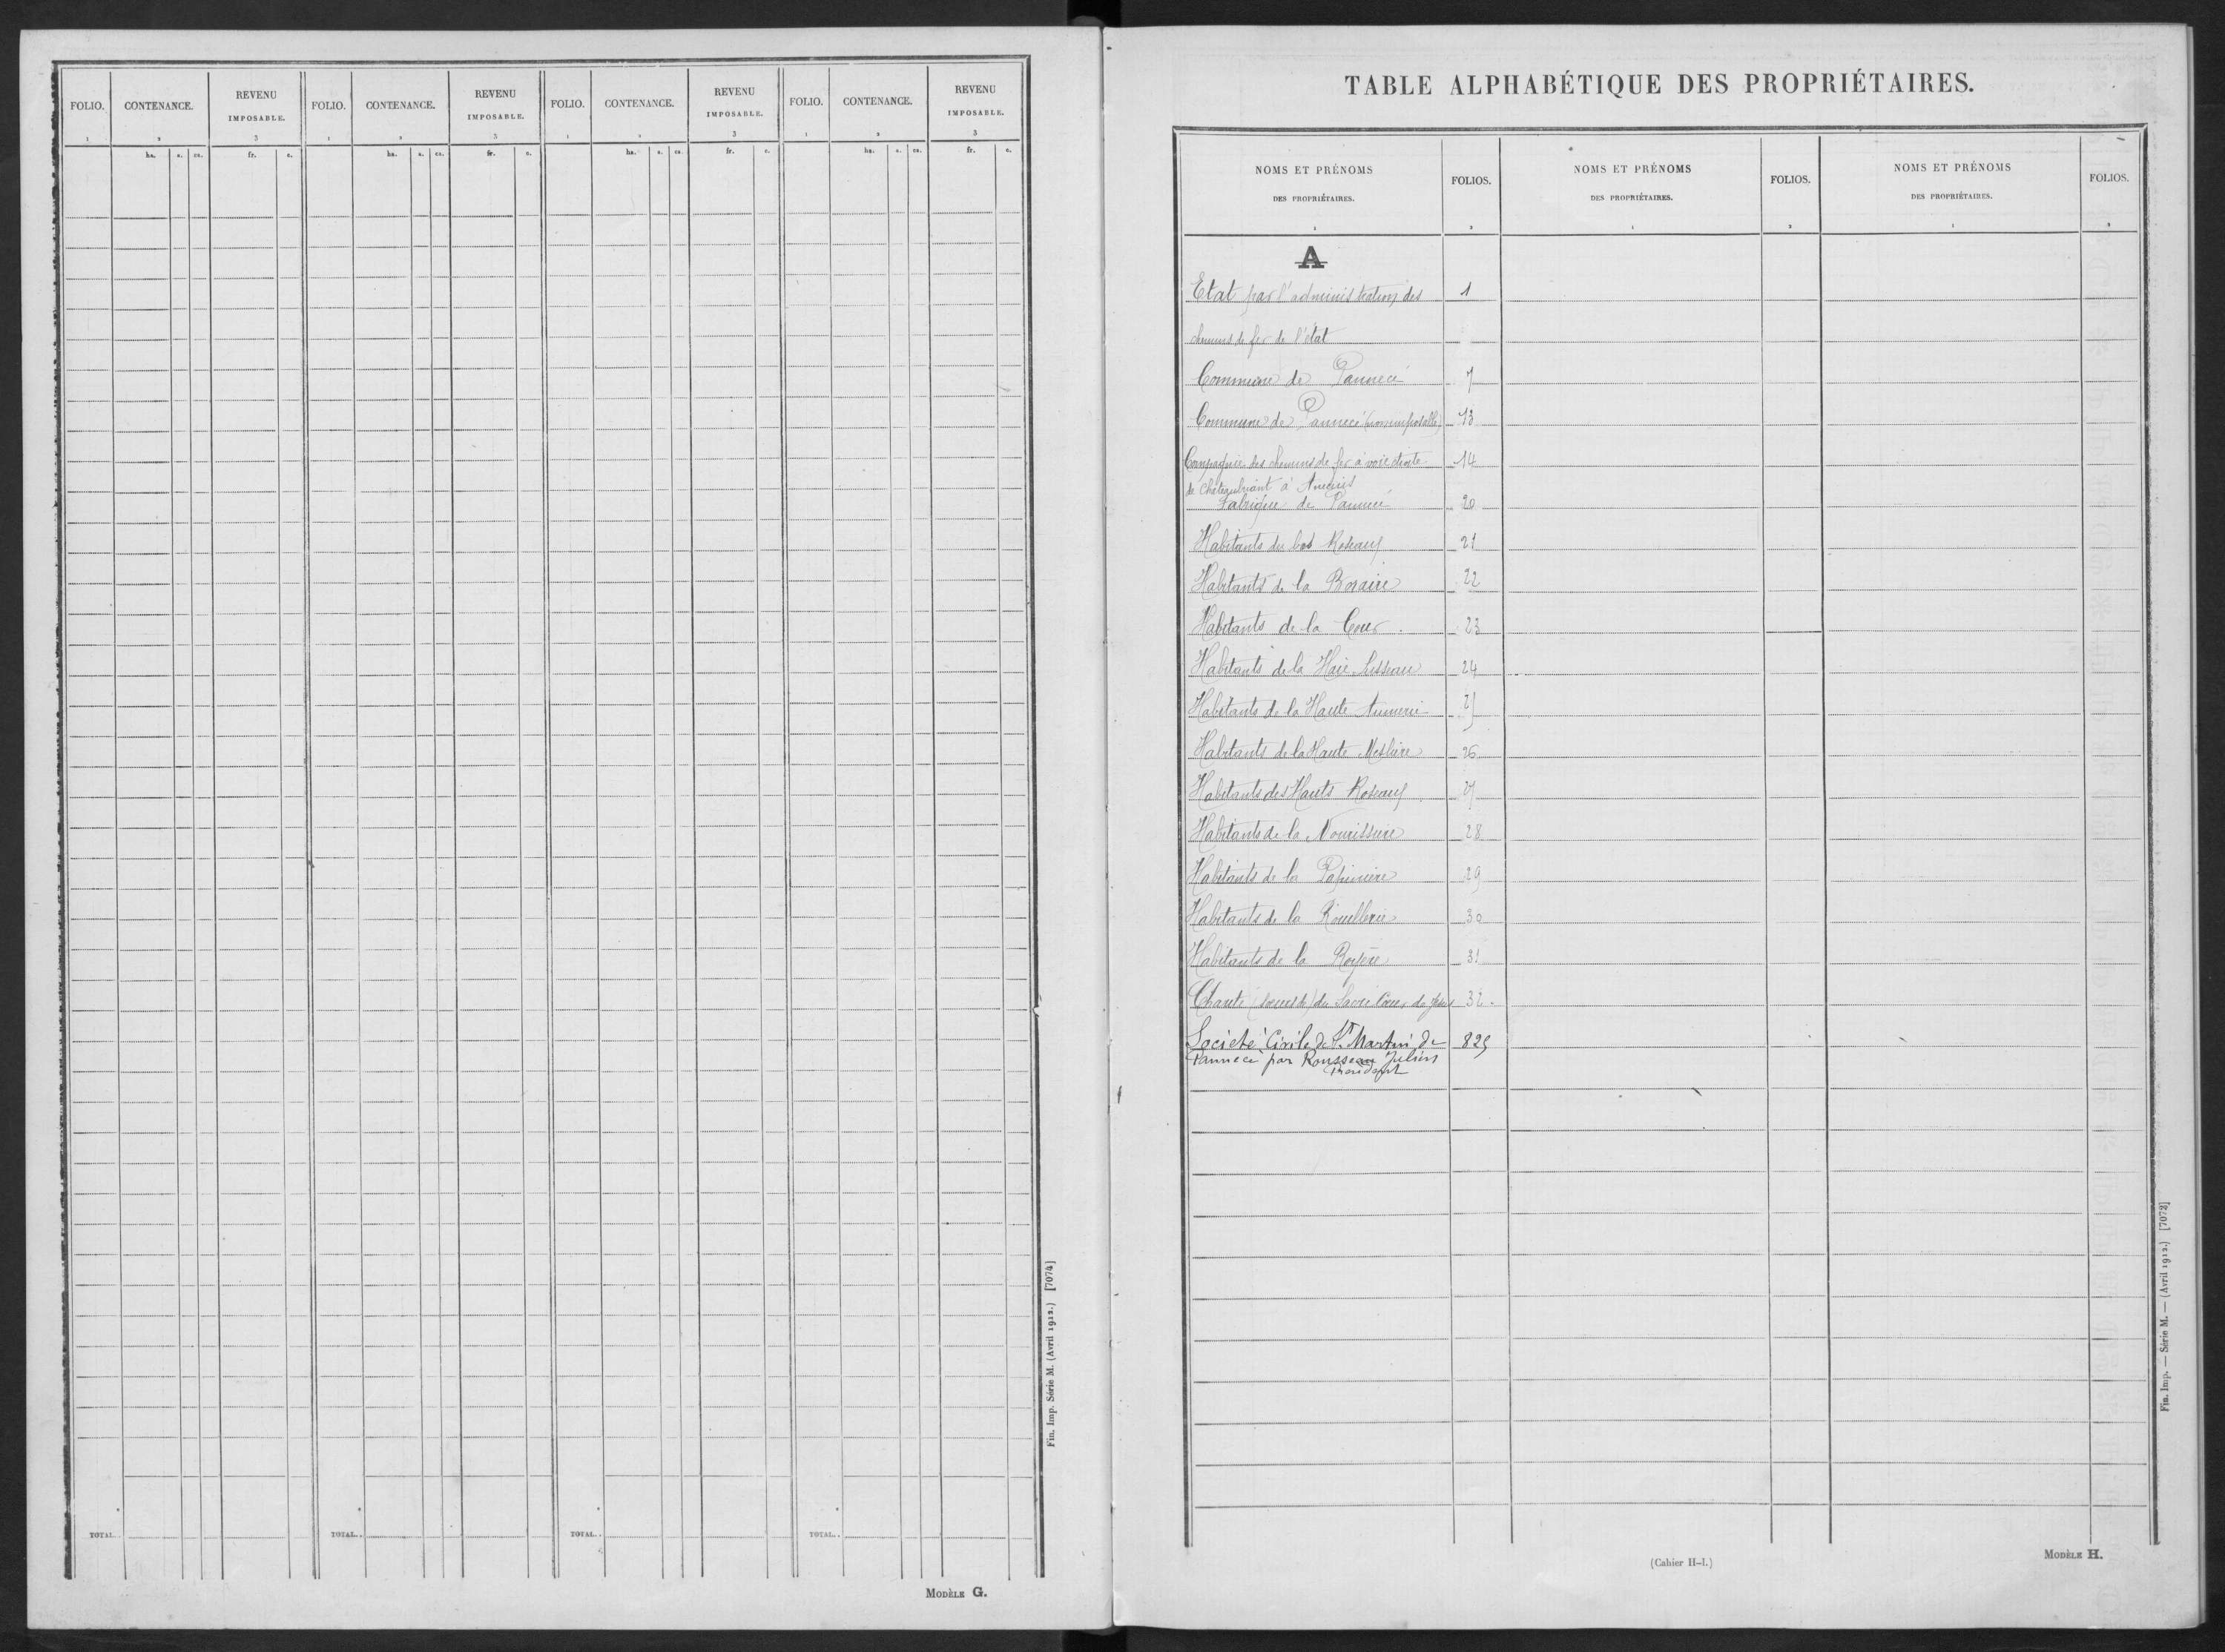 FOLIO. CONTENANCE. REVENU IMPOSABLE. FOLIO. CONTENANCE. REVENU IMPOSABLE. FOLIO. CONTENANCE. REVENU IMPOSABLE. FOLIO. CONTENANCE. REVENU IMPOSABLE.
1 2 3 1 2 3 1 2 3 1 2 3
ha. a. ca. fr. c. ha. a. ca. fr. c. ha. a. ca. fr. c. ha. a. ca. fr. c.
TOTAL.. TOTAL.. TOTAL.. TOTAL..
Fin. Imp. Série M. (Avril 1912.) [7074]
MODÈLE G.
TABLE ALPHABÉTIQUE DES PROPRIÉTAIRES.
NOMS ET PRÉNOMS DES PROPRIÉTAIRES. FOLIOS. NOMS ET PRÉNOMS DES PROPRIÉTAIRES. FOLIOS. NOMS ET PRÉNOMS DES PROPRIÉTAIRES. FOLIOS.
1 2 1 2 1 2
A
Etat par l'administration des 1
chemins de fer de l'état
Commune de Pannecé 7
Commune de Pannecé (non imposable) 13
Compagnie des chemins de fer à voie étroite 14
de Châteaubriant à Ancenis
Fabrique de Pannecé 20
Habitants du bas Roseaux 21
Habitants de la 22
Habitants de la Cour 23
Habitants de la Haie 24
Habitants de la Haute 25
Habitants de la Haute 26
Habitants des Hauts Roseaux 27
Habitants de la 28
Habitants de la 29
Habitants de la Rouellerie 30
Habitants de la 31
Charité (soeurs de) du Sacré Coeur de Jésus 32
Société Civile de St Martin de 825
Pannecé par Rousseau Julien
Président
Fin. Imp. — Série M. — (Avril 1912.) [7072]
(Cahier H-1.)
MODÈLE H.